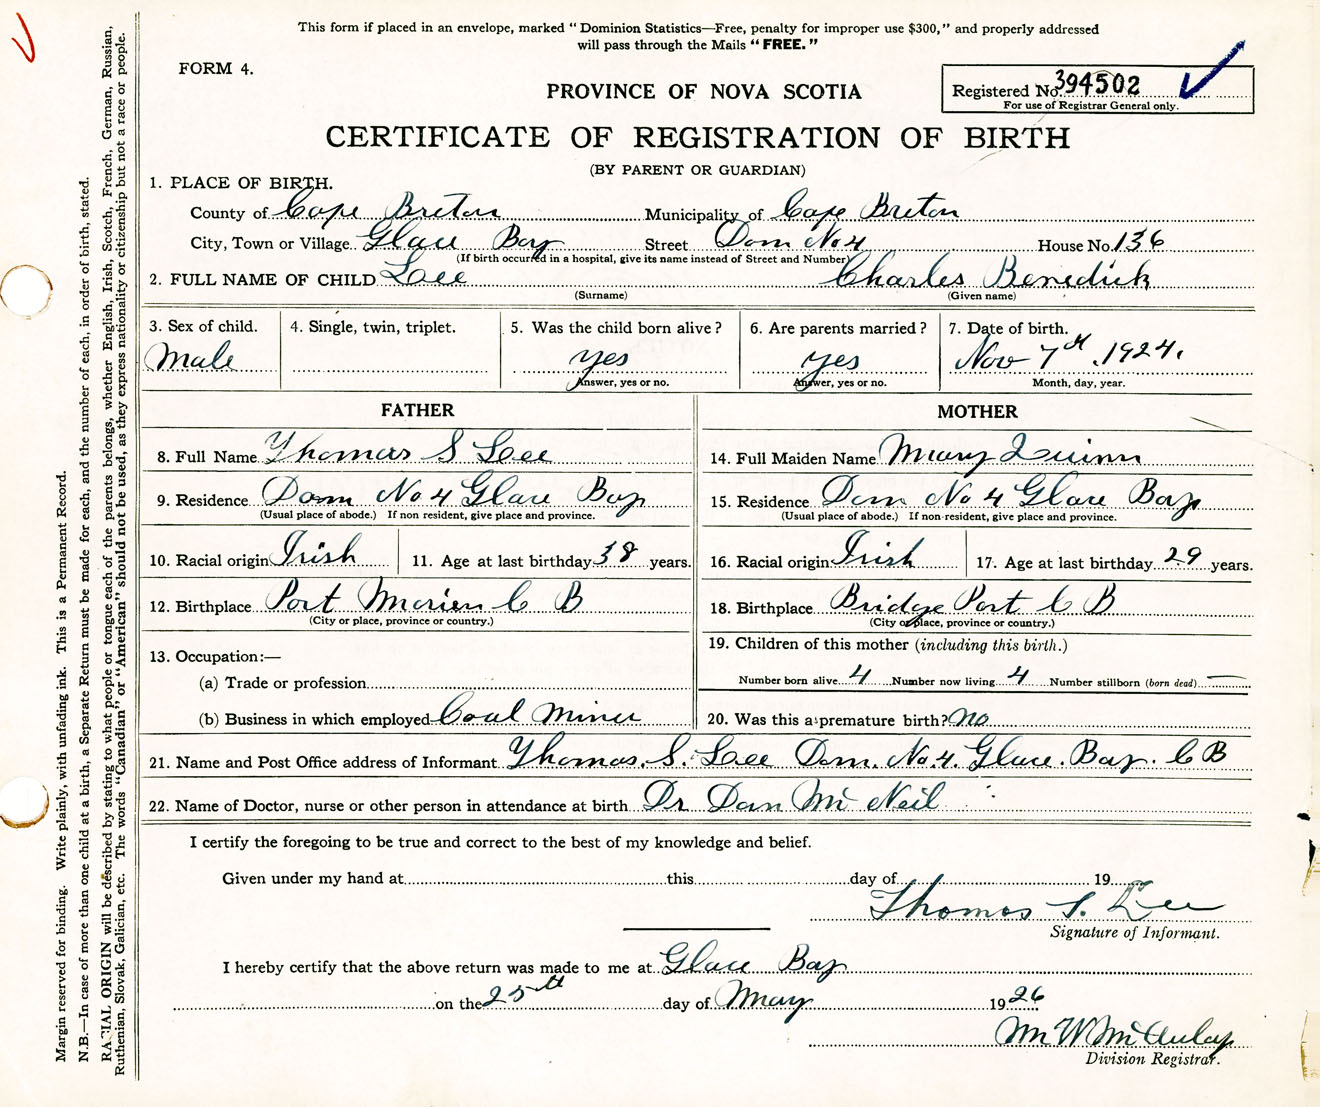 This form if placed in an envelope, marked "Dominion Statistics—Free, penalty for improper use $300," and properly addressed
will pass through the Mails "FREE."
FORM 4.
PROVINCE OF NOVA SCOTIA
Registered No. 394502
For use of Registrar General only.
CERTIFICATE OF REGISTRATION OF BIRTH
(BY PARENT OR GUARDIAN)
1. PLACE OF BIRTH.
County of Cape Breton Municipality of Cape Breton
City, Town or Village Glace Bay Street Dom No 4 House No. 136
(If birth occurred in a hospital, give its name instead of Street and Number)
2. FULL NAME OF CHILD Lee Charles Benedick
(Surname) (Given name)
3. Sex of child. 4. Single, twin, triplet. 5. Was the child born alive? 6. Are parents married? 7. Date of birth.
Male yes yes Nov 7th, 1924.
Answer, yes or no. Answer, yes or no. Month, day, year.
FATHER MOTHER
8. Full Name Thomas S Lee 14. Full Maiden Name Mary Quinn
9. Residence Dom No 4 Glace Bay 15. Residence Dom No 4 Glace Bay
(Usual place of abode.) If non resident, give place and province. (Usual place of abode.) If non-resident, give place and province.
10. Racial origin Irish 11. Age at last birthday 38 years. 16. Racial origin Irish 17. Age at last birthday 29 years.
12. Birthplace Port Morien C B 18. Birthplace Bridge Port C B
(City or place, province or country.) (City or place, province or country.)
13. Occupation:— 19. Children of this mother (including this birth.)
(a) Trade or profession Number born alive 4 Number now living 4 Number stillborn (born dead) —
(b) Business in which employed Coal Miner 20. Was this a premature birth? no
21. Name and Post Office address of Informant Thomas. S. Lee Dom. No. 4. Glace. Bay. C B
22. Name of Doctor, nurse or other person in attendance at birth Dr Dan McNeil
I certify the foregoing to be true and correct to the best of my knowledge and belief.
Given under my hand at this day of 19
Thomas S. Lee
Signature of Informant.
I hereby certify that the above return was made to me at Glace Bay
on the 25th day of May 1926
Division Registrar.
Margin reserved for binding. Write plainly, with unfading ink. This is a Permanent Record.
N.B.—In case of more than one child at a birth, a Separate Return must be made for each, and the number of each, in order of birth, stated.
RACIAL ORIGIN will be described by stating to what people or tongue each of the parents belongs, whether English, Irish, Scotch, French, German, Russian,
Ruthenian, Slovak, Galician, etc. The words "Canadian" or "American" should not be used, as they express nationality or citizenship but not a race or people.